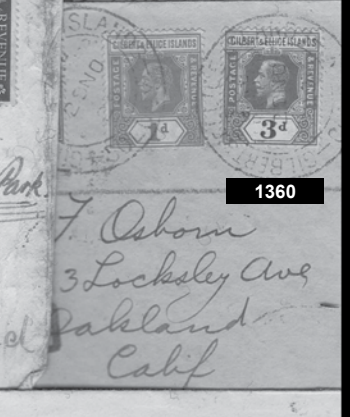 & REVENUE
ISLAND
25 NO
GILBERT & ELLICE ISLANDS
POSTAGE
& REVENUE
1d
GILBERT & ELLICE ISLANDS
POSTAGE
& REVENUE
3d
GILBERT
1360
Park
F. Osborn
3 Locksley Ave
Oakland
Calif